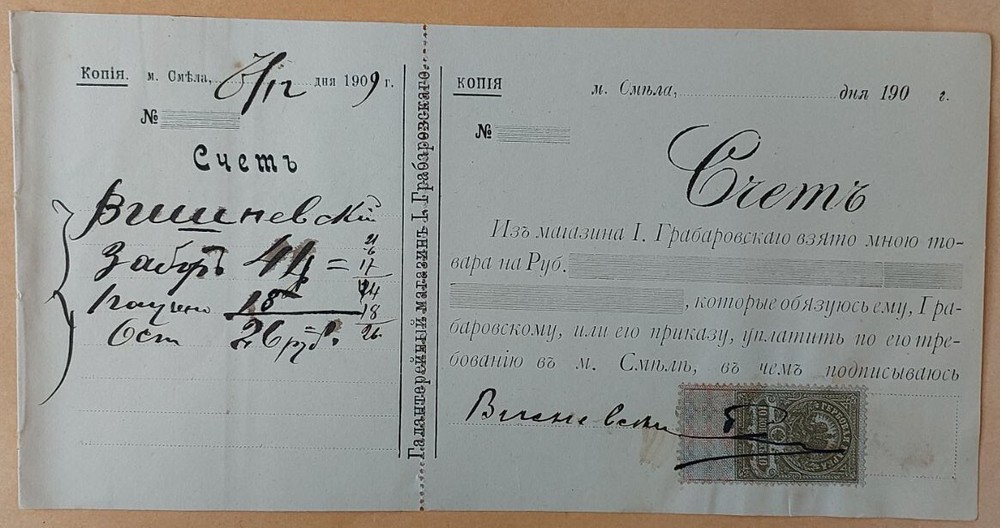 Копія. м. Смѣла, 7/12 дня 1909 г.
№
Счетъ
Вишневскій
Забрт 44 =
18
Ост 26 руб.
21
6
17
44
18
26
Галантерейный магазинъ І. Грабаровскаго.
КОПІЯ м. Смѣла, дня 190 г.
№
Счетъ
Изъ магазина І. Грабаровскаго взято мною то-
вара на Руб.
, которые обязуюсь ему, Гра-
баровскому, или его приказу, уплатить по его тре-
бованію въ м. Смѣлѣ, въ чемъ подписываюсь
Вишневски